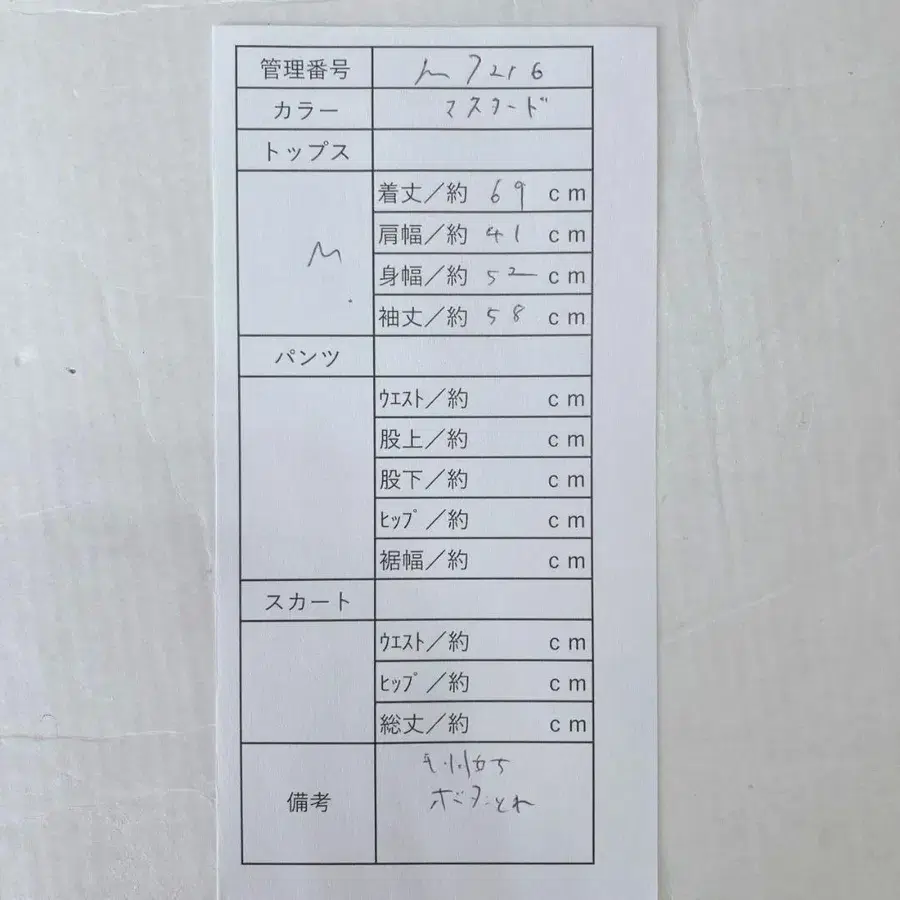 管理番号 m7216
カラー マスタード
トップス
M
着丈／約 69 cm
肩幅／約 41 cm
身幅／約 52 cm
袖丈／約 58 cm
パンツ
ｳｴｽﾄ／約 cm
股上／約 cm
股下／約 cm
ﾋｯﾌﾟ／約 cm
裾幅／約 cm
スカート
ｳｴｽﾄ／約 cm
ﾋｯﾌﾟ／約 cm
総丈／約 cm
備考
ボタンとれ